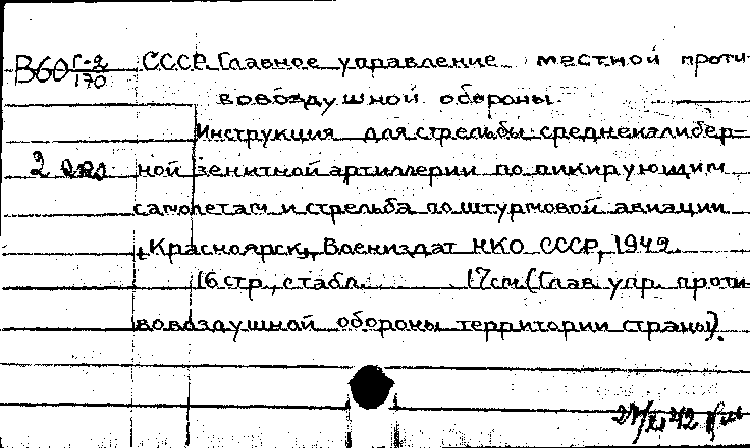 В60 Г-2/170 СССР. Главное управление местной проти-
вовоздушной обороны.
Инструкция для стрельбы среднекалибер-
2 экз ной зенитной артиллерии по пикирующим
самолетам и стрельба по штурмовой авиации
Красноярск, Воениздат НКО СССР, 1942.
16 стр., с табл. 17см (Глав. упр. проти-
вовоздушной обороны территории страны).